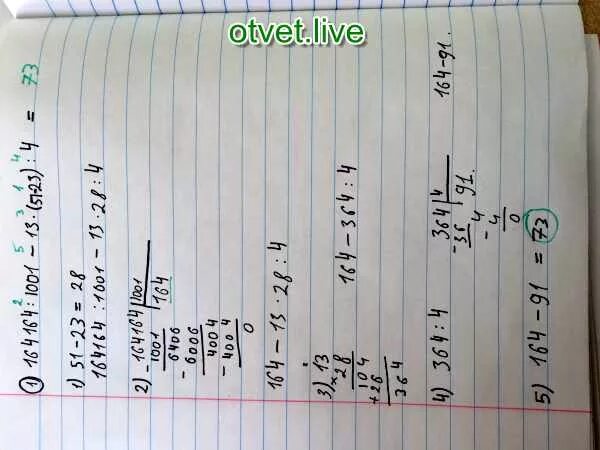 otvet.live
5 2 3 1 4
1) 164164 : 1001 - 13 · (51-23) : 4 = 73
1) 51 - 23 = 28
164164 : 1001 - 13 · 28 : 4
2) -164164 | 1001
1001 | 164
6406
- 6006
4004
- 4004
0
164 - 13 · 28 : 4
3) 13
× 28
104
+ 26
364
164 - 364 : 4
4) 364 : 4
364 | 4
- 36 | 91.
4
- 4
0
164 - 91.
5) 164 - 91 = 73